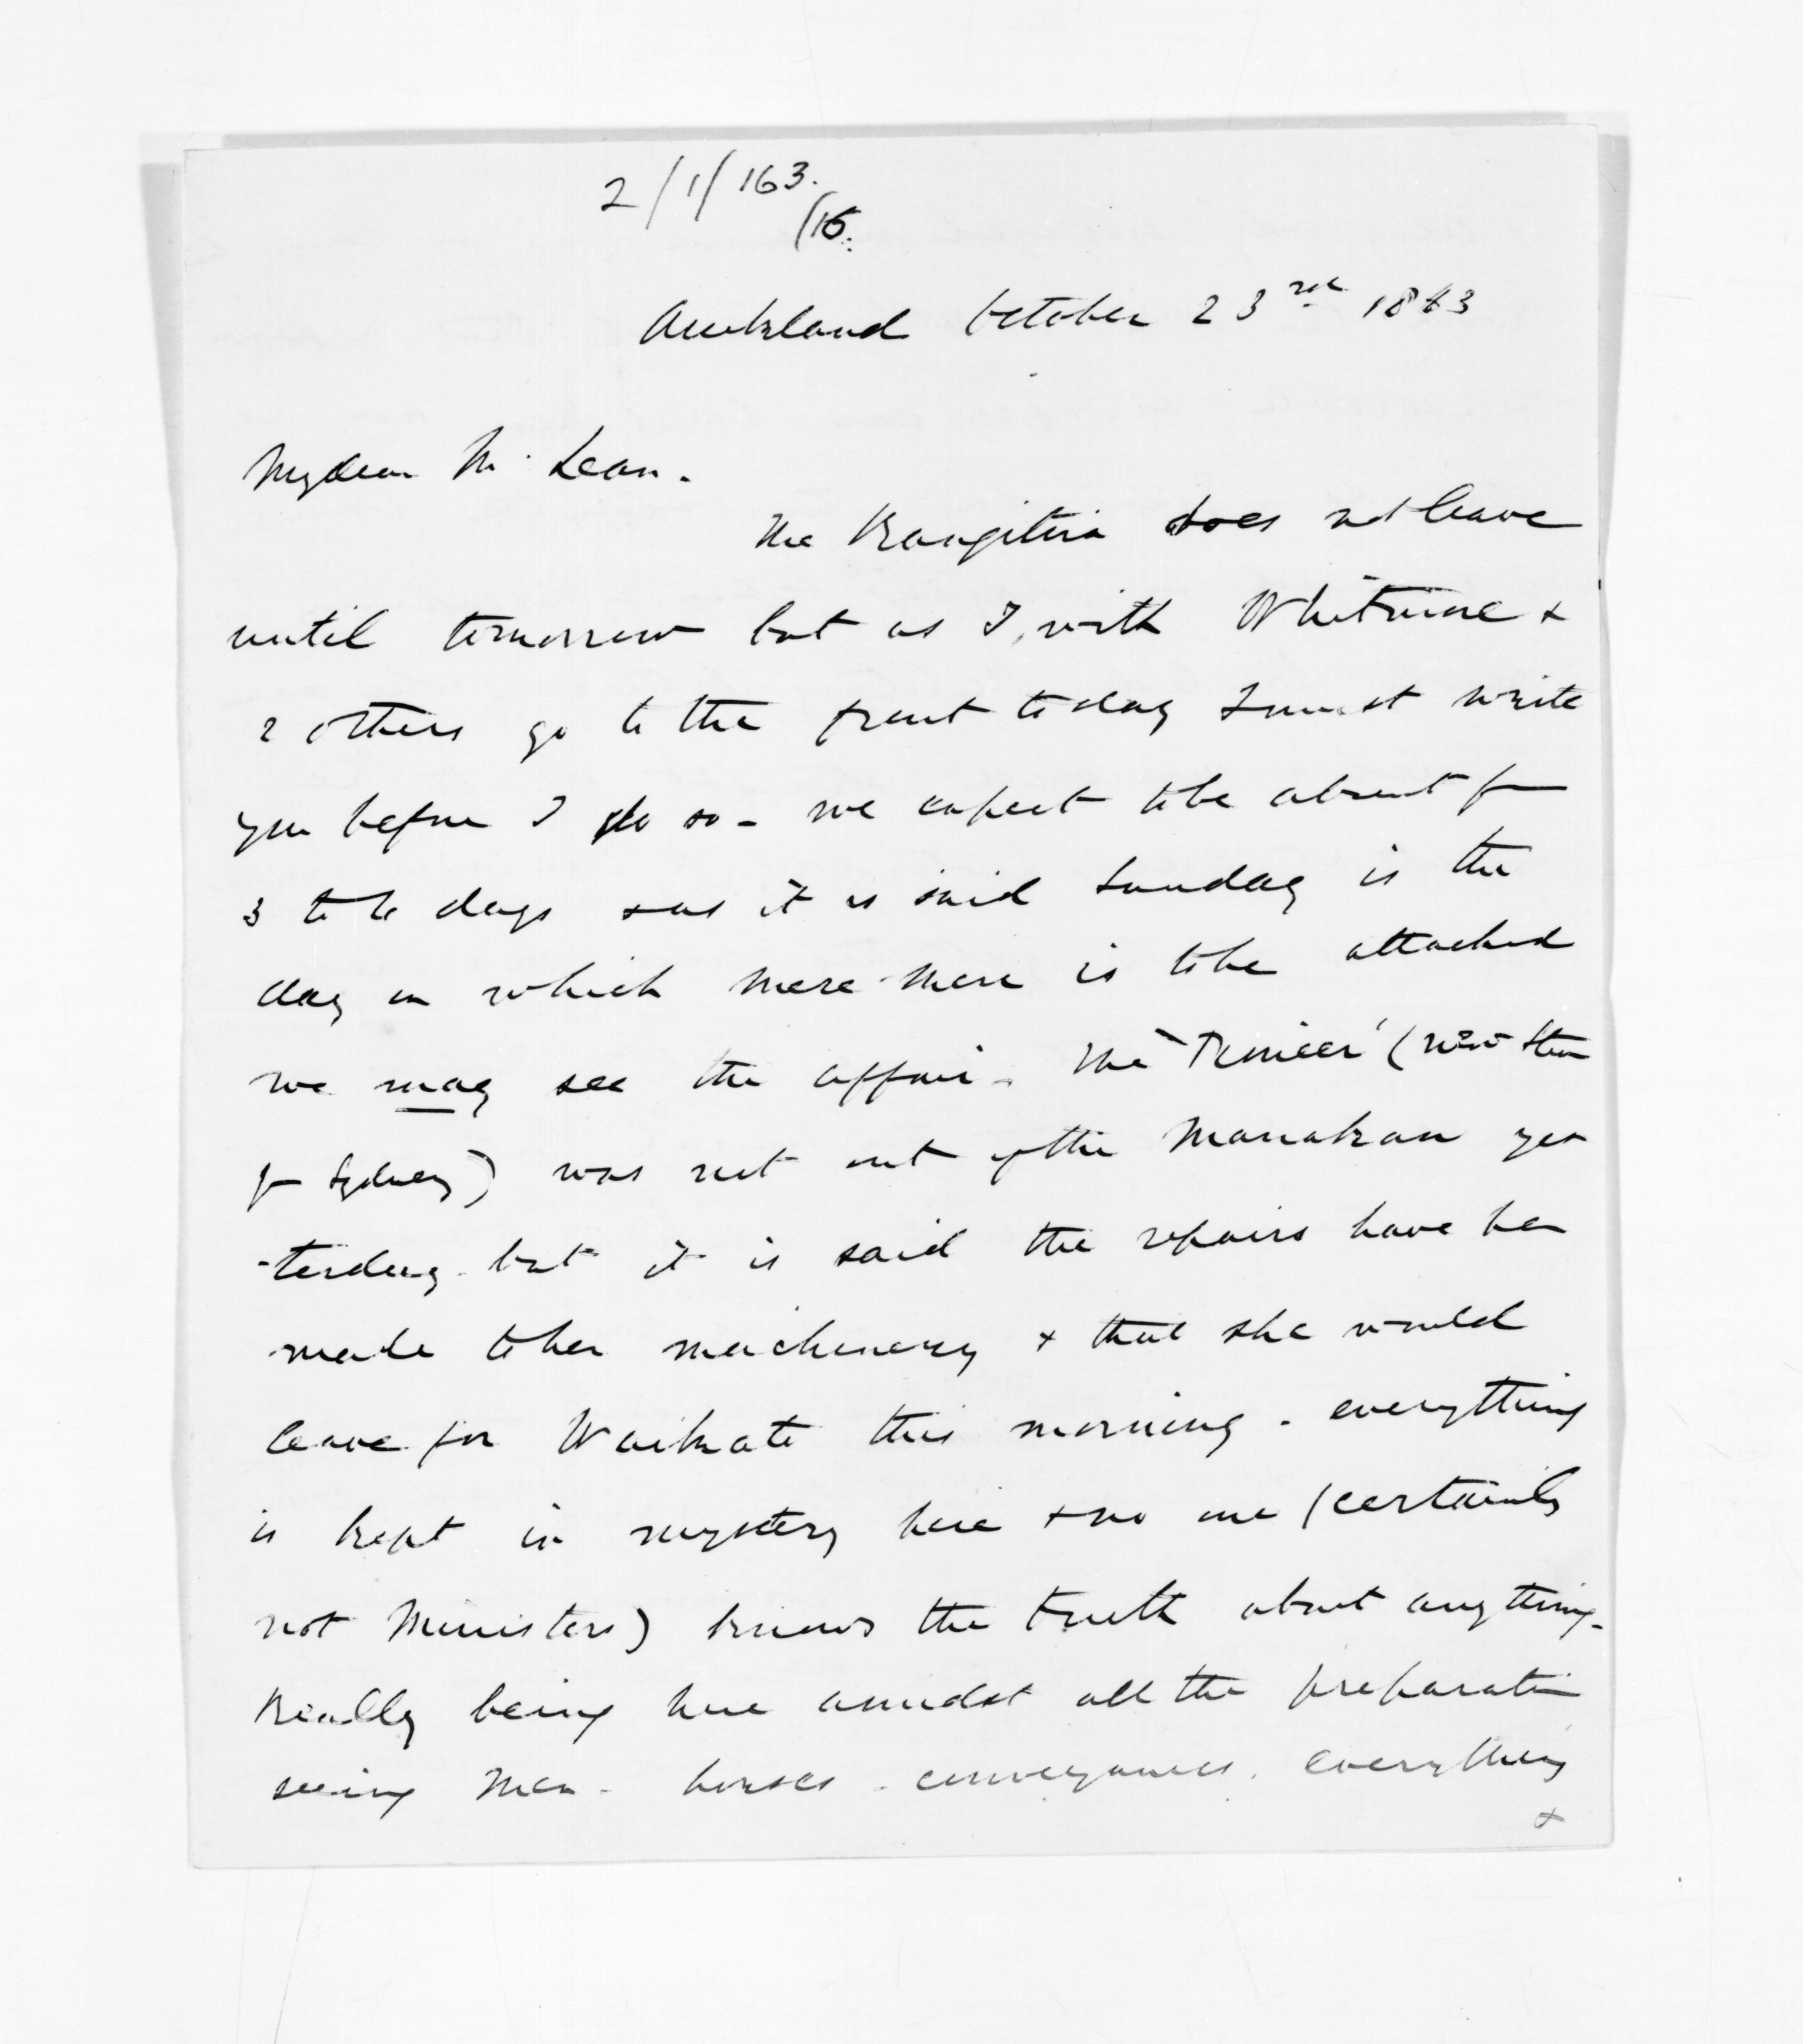 2/1/163.
/15.
Auckland October 23rd 1863
My dear McLean.
The Rangitira does not leave
until tomorrow but as I, with Whitmore &
2 others go to the front today I must write
you before I do so - we expect to be absent for
3 to 6 days & as it is said Sunday is the
day on which Mere Mere is to be attacked
we may see the affair - The "Pioneer" (new Str
fr Sydney) was not out of the Manakau yes
-terday but it is said the repairs have been
made to her machinery & that she would
leave for Waikato this morning - everything
is kept in mystery here & no one (certainly
not Ministers) knows the truth about anything -
Really being here amidst all the preparation
seeing men - horses - conveyances. everything
&